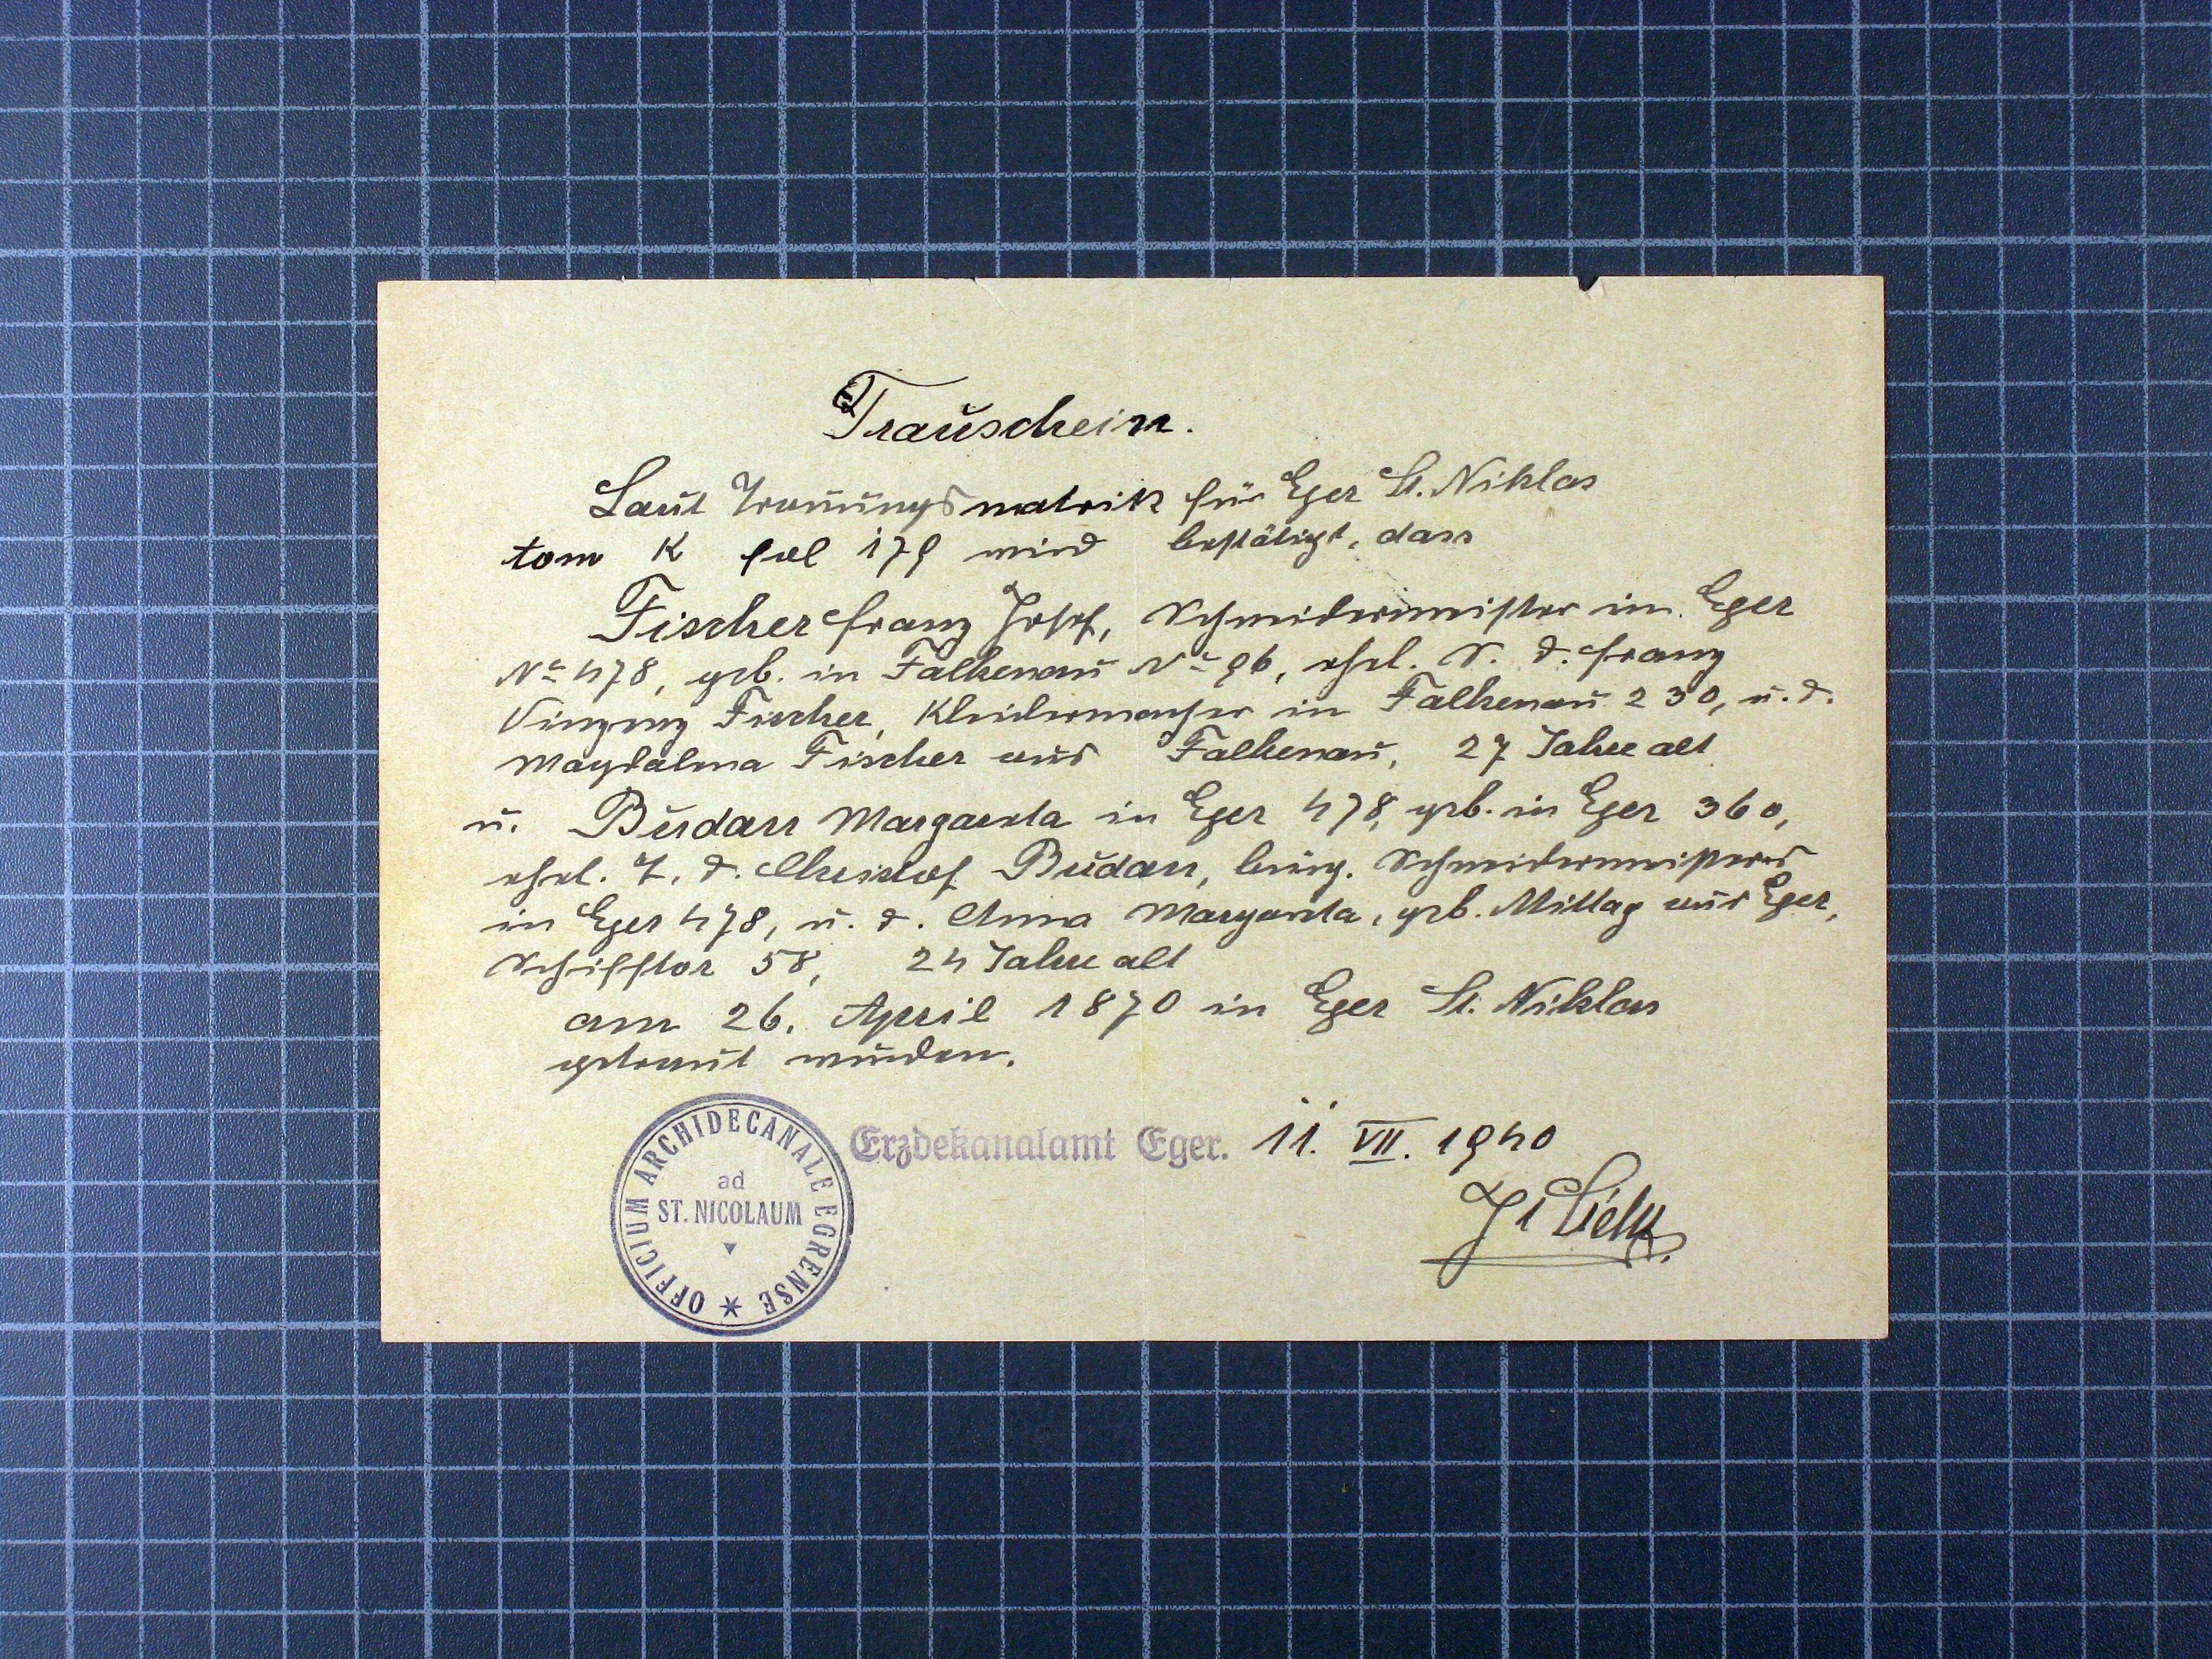 Trauschein.
Laut Trauungsmatrik für Eger St. Niklas
tom K fol 179 wird bestätigt, dass
Fischer Franz Josef, Schneidermeister in Eger
No 478, geb. in Falkenau No 96, ehel. S. d. Franz
Vinzenz Fischer, Kleidermacher in Falkenau 230, u. d.
Magdalena Fischer aus Falkenau, 27 Jahre alt
u. Budarr Margareta in Eger 478, geb. in Eger 360,
ehel. T. d. Christof Budarr, bürg. Schneidermeisters
in Eger 478, u. d. Anna Margareta, geb. Mittag aus Eger,
Schifftor 58, 24 Jahre alt
am 26. April 1870 in Eger St. Niklas
getraut wurden.
Erzdekanalamt Eger. 11. VII. 1940
OFFICIUM ARCHIDECANALE EGRENSE
ad
ST. NICOLAUM